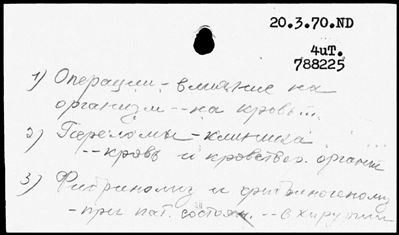 20.3.70.ND
4чт.
788225
1) Операции - влияние на
организм -- на кровь...
2) Переломы - клиника
-- кровь и кроветвор. органы
3) Фибринолиз и фибриногеному
- при пат. состоян. -- в хирургии